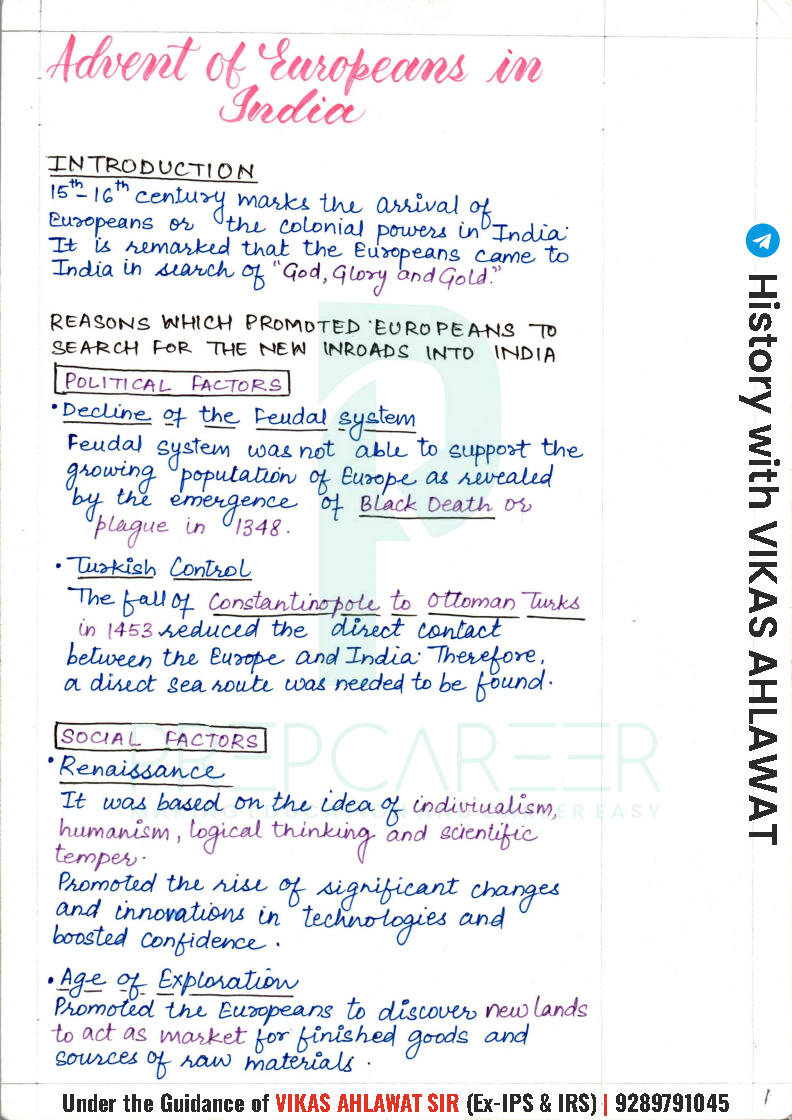 Advent of Europeans in
India
INTRODUCTION
15th-16th century marks the arrival of
Europeans or the colonial powers in India.
It is remarked that the Europeans came to
India in search of "God, Glory and Gold."
REASONS WHICH PROMOTED EUROPEANS TO
SEARCH FOR THE NEW INROADS INTO INDIA
POLITICAL FACTORS
• Decline of the Feudal system
Feudal system was not able to support the
growing population of Europe as revealed
by the emergence of Black Death or
plague in 1348.
• Turkish Control
The fall of Constantinopole to Ottoman Turks
in 1453 reduced the direct contact
between the Europe and India. Therefore,
a direct sea route was needed to be found.
SOCIAL FACTORS
• Renaissance
It was based on the idea of indiviualism,
humanism, logical thinking and scientific
temper.
Promoted the rise of significant changes
and innovations in technologies and
boosted confidence.
• Age of Exploration
Promoted the Europeans to discover new lands
to act as market for finished goods and
sources of raw materials.
PREPCAREER
MAKING EDUCATION AND CAREER EASY
History with VIKAS AHLAWAT
Under the Guidance of VIKAS AHLAWAT SIR (Ex-IPS & IRS) | 9289791045
1